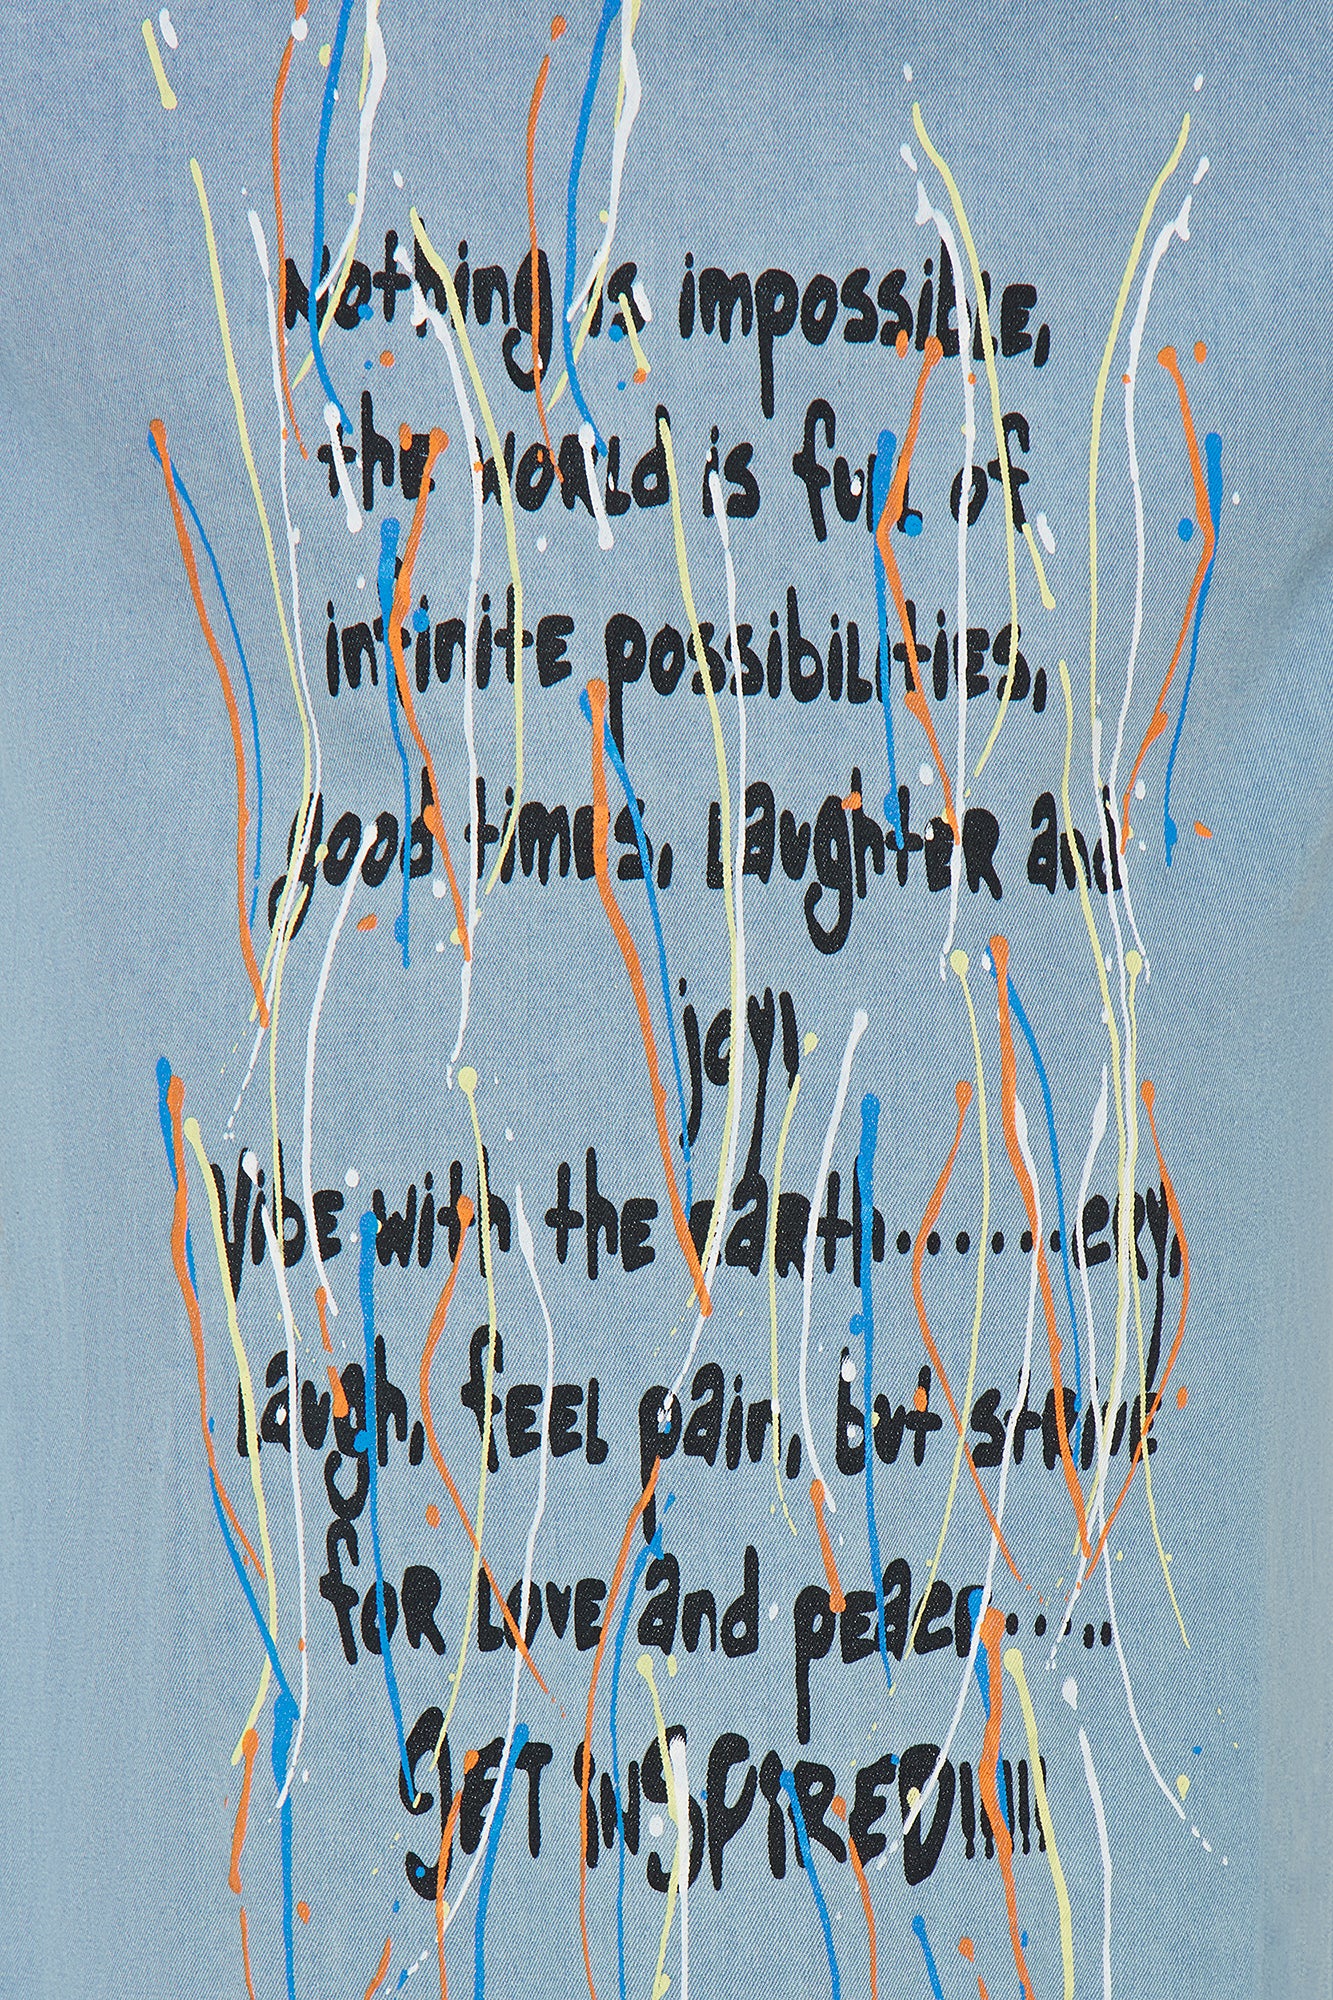 Nothing is impossible,
the world is full of
infinite possibilities,
good times, laughter and
joy!
Vibe with the earth.......cry,
laugh, feel pain, but strive
for love and peace.....
GET INSPIRED!!!!!